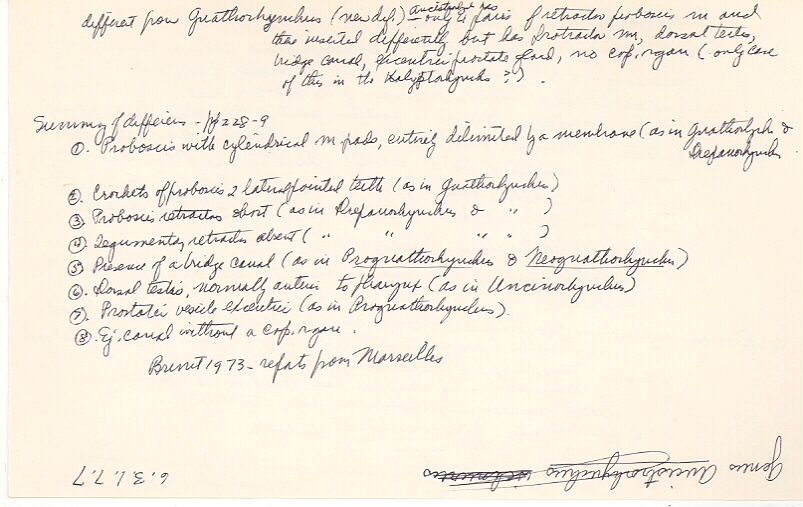 different from Gnathorhynchus (new def) ancistrorhynchus has only 2 pairs of retractor proboscis m and
these inserted differently but has protractor m, dorsal testes,
bridge canal, excentric prostate gland, no cop. organ (only case
of this in the Kalyptorhynchs?).
Summary of differences - pg 228-9
①. Proboscis with cylindrical m pads, entirely delimited by a membrane (as in Gnathorhynchs &
Drepanorhynchus
②. Crochets of proboscis 2 lateral pointed teeth (as in Gnathorhynchus)
③. Proboscis retractors short (as in Drepanorhynchus & " )
④. Tegumentary retractors absent ( " " " " )
⑤. Presence of a bridge canal (as in Prognathorhynchus & Neognathorhynchus)
⑥. Dorsal testis, normally anterior to pharynx (as in Uncinorhynchus)
⑦. Prostatic vesicle excentric (as in Prognathorhynchus).
⑧. Ej. canal without a cop. organ.
Brunet 1973 - repats from Marseilles
Genus Ancistrorhynchus
6.3.1.7.7